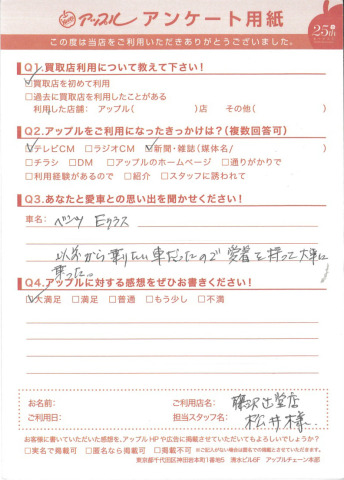 アップル アンケート用紙
25th
この度は当店をご利用いただきありがとうございました。
Q1.買取店利用について教えて下さい!
☑買取店を初めて利用
□過去に買取店を利用したことがある
利用した店舗: アップル( )店 その他( )
Q2.アップルをご利用になったきっかけは?(複数回答可)
☑テレビCM □ラジオCM ☑新聞・雑誌(媒体名/ )
□チラシ □DM □アップルのホームページ □通りがかりで
□利用経験があるので □紹介 □スタッフに誘われて
Q3.あなたと愛車との思い出を聞かせください!
車名: ベンツ Eクラス
以前から乗りたい車だったので愛着を持って大事に
乗った。
Q4.アップルに対する感想をぜひお書きください!
☑大満足 □満足 □普通 □もう少し □不満
お名前: ご利用店名: 藤沢辻堂店
ご利用日: 担当スタッフ名: 松井様
お客様に書いていただいた感想を、アップルHPや広告に掲載させていただいてもよろしいでしょうか?
□実名で掲載可 □匿名なら掲載可 □掲載不可 ※ご記入がない場合は匿名での掲載とさせていただきます。
東京都千代田区神田岩本町1番地5 清水ビル6F アップルチェーン本部